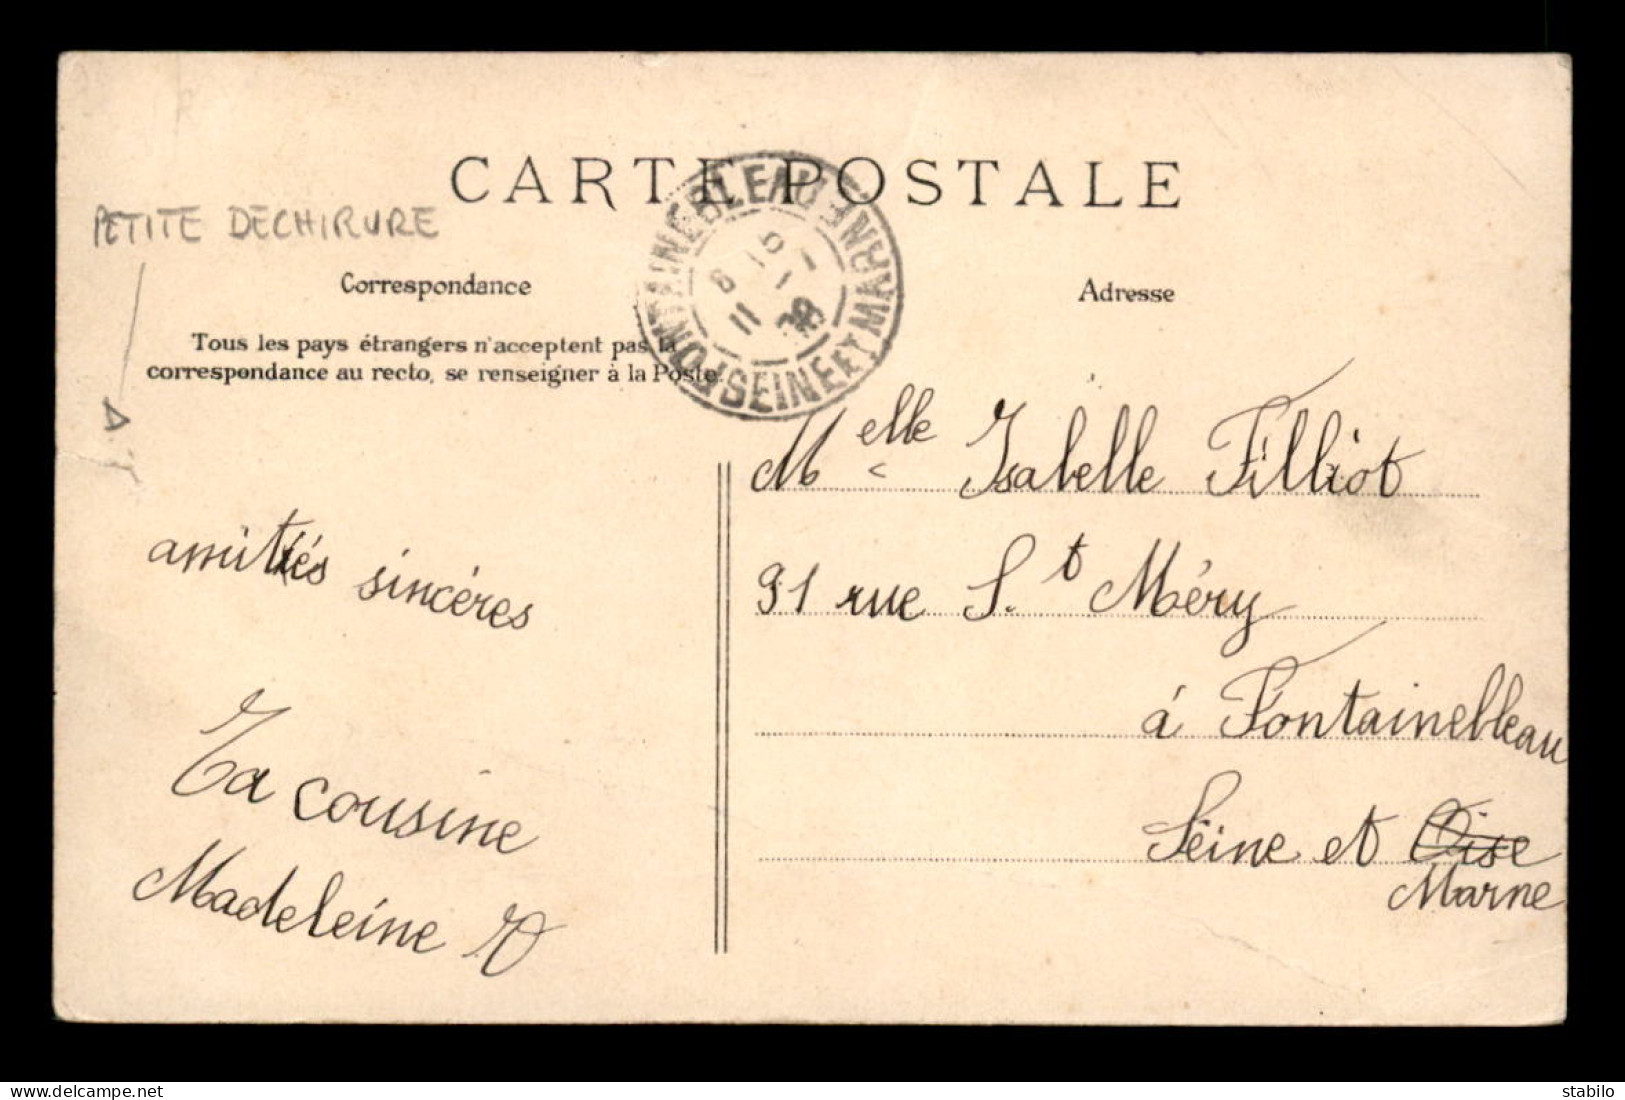 CARTE POSTALE
PETITE DECHIRURE
Correspondance
Tous les pays étrangers n'acceptent pas la
correspondance au recto, se renseigner à la Poste.
FONTAINEBLEAU
SEINE ET MARNE
11 08
amitiés sincères
Ta cousine
Madeleine
Adresse
Melle Isabelle Filliot
91 rue St Méry
à Fontainebleau
Seine et Oise
Marne
www.delcampe.net
stabilo